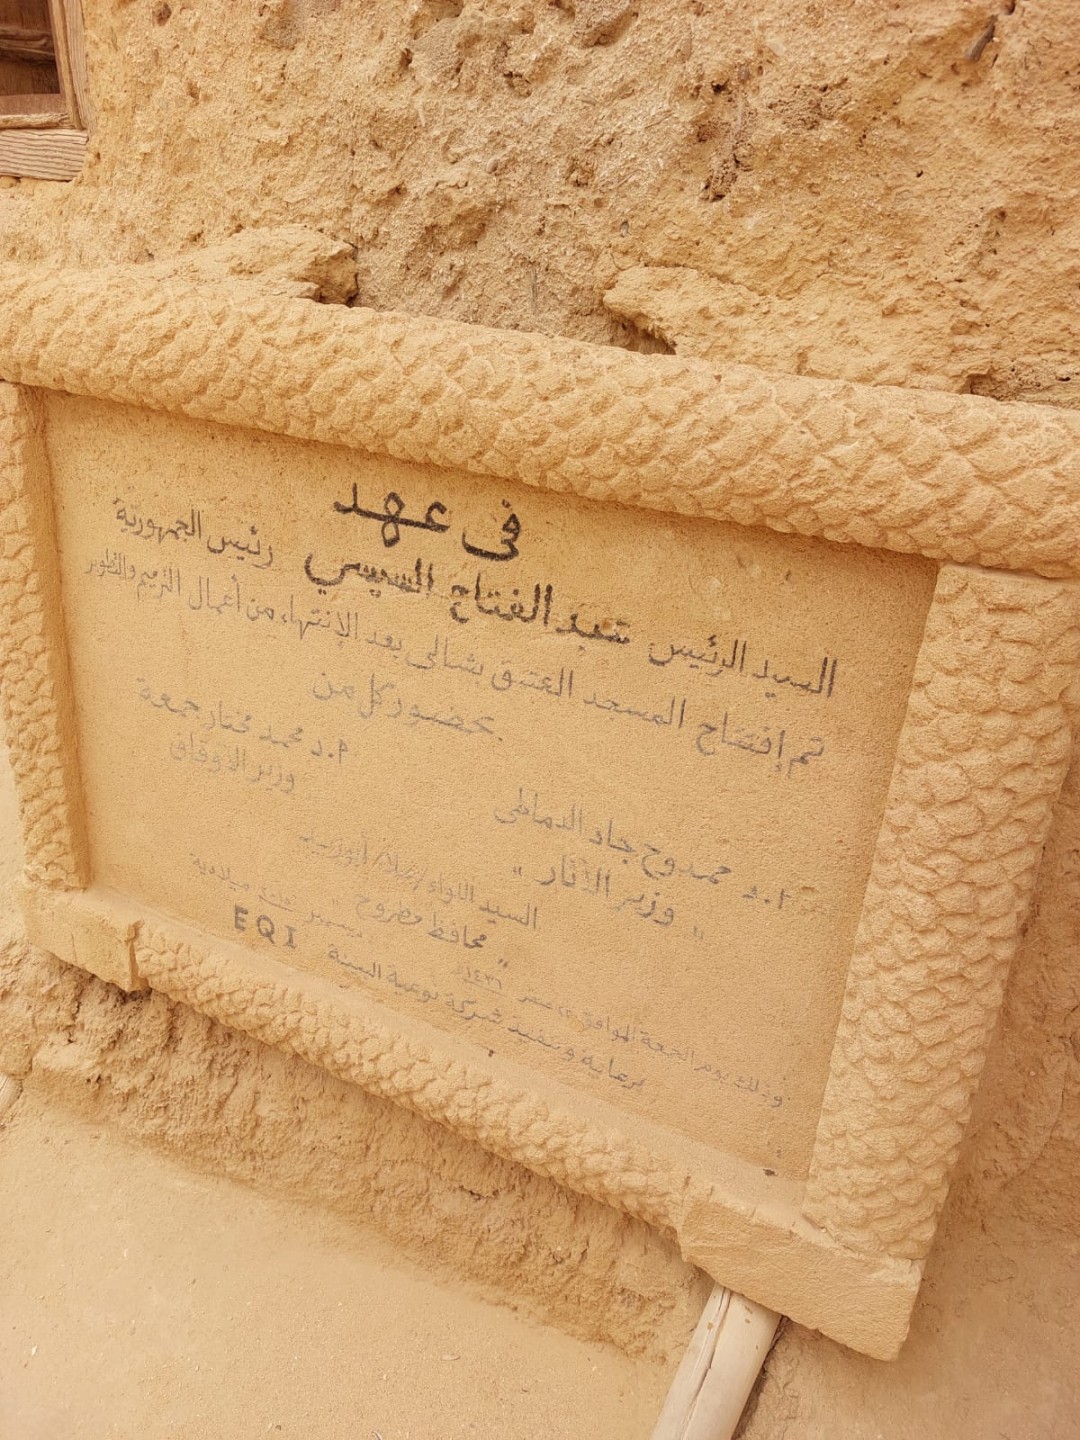 فى عهد
السيد الرئيس عبد الفتاح السيسي رئيس الجمهورية
تم إفتتاح المسجد العتيق بشالى بعد الإنتهاء من أعمال الترميم والتطوير
بحضور كل من
أ.د محمد مختار جمعة
وزير الاوقاف
أ.د ممدوح جاد الدماطى
" وزير الآثار "
السيد اللواء / علاء أبوزيد
" محافظ مطروح "
وذلك يوم الجمعة الموافق صفر ١٤٣٦ ديسمبر ميلاديه
برعاية وتنفيذ شركة نوعية البيئة EQI